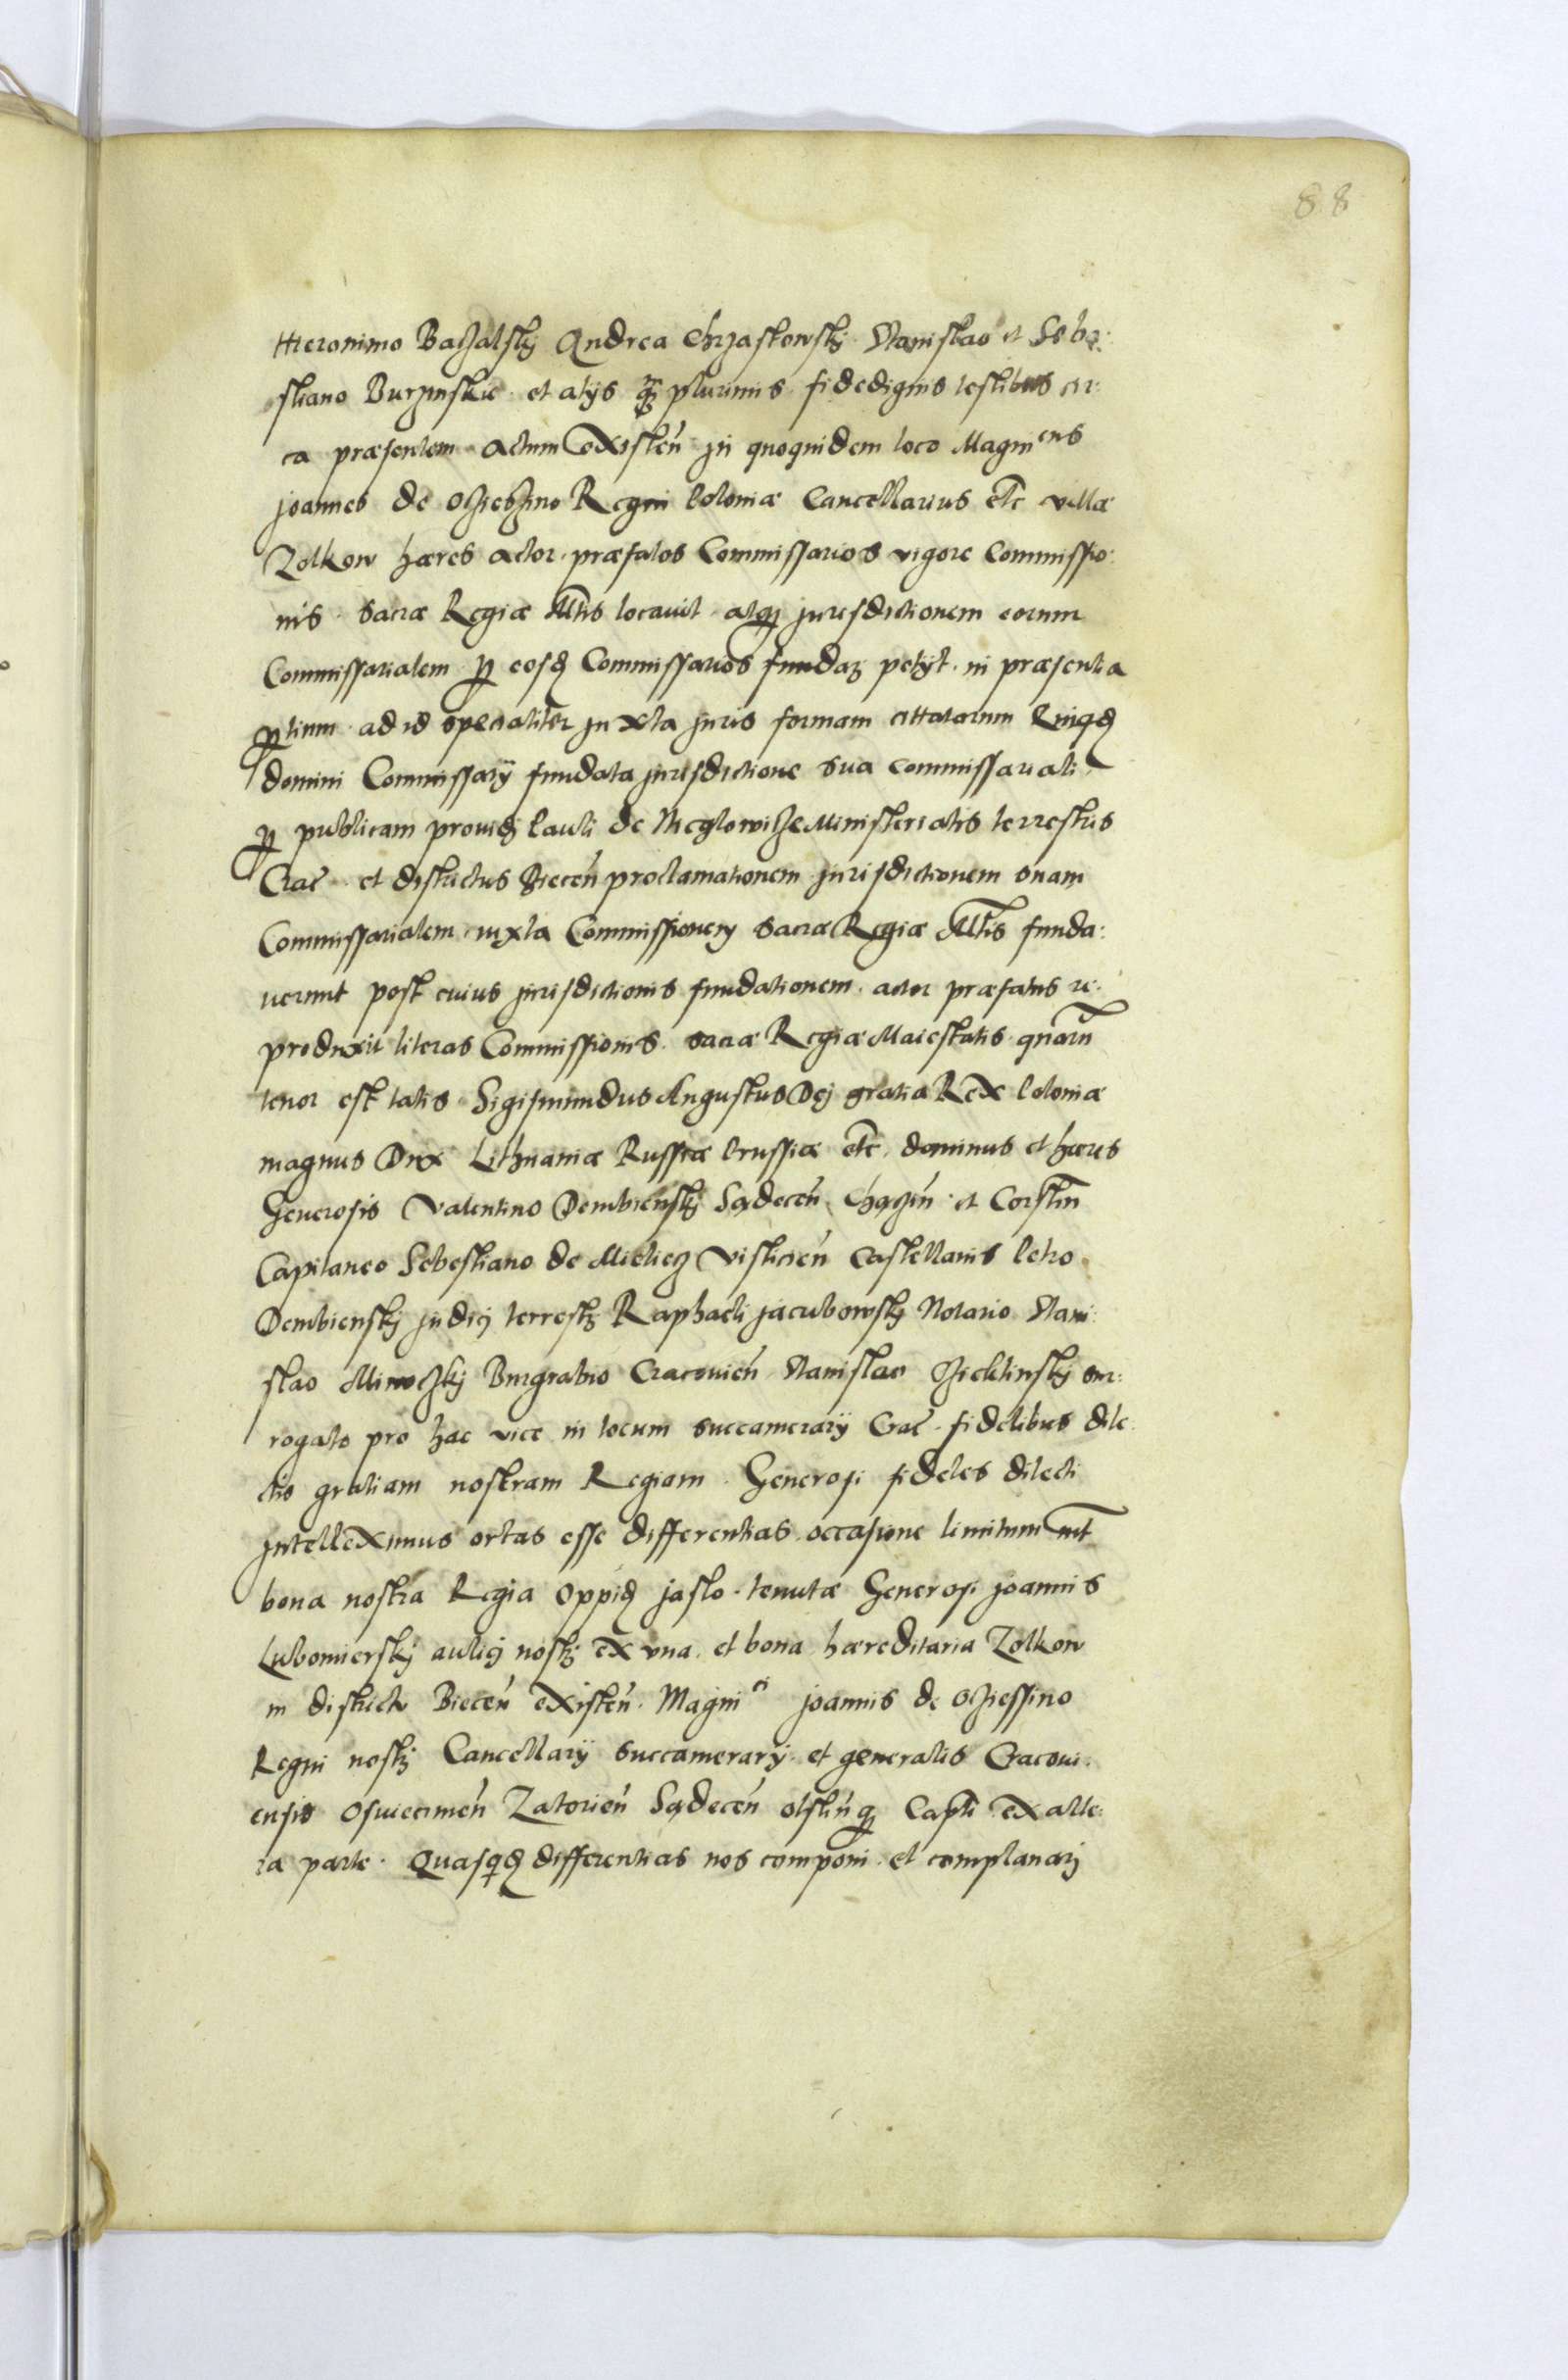 88
Hieronimo Baczalskÿ Andrea Chrząstowskÿ Stanislao et Seba:
stiano Burzinskie et alÿs qꝫ plurimis fidedignis testibus cir:
ca præsentem actum existen̄ in quoquidem loco Magnicus
joannes de Ocziesszino Regni Poloniæ Cancellarius etc villæ
Zolkow hæres actor præfatos Commissarios vigore Commissio:
nis sacræ Regiæ Mtis locavit atqꝫ jurisdictionem eorum
Commissarialem ꝑ eosd Commissarios fundarj petÿt in præsentia
ꝑtium ad id specialiter juxta juris formam cittatarum Quiqd
domini Commissarÿ fundata jurisdictione sua commissariali
ꝑ publicam providj Pauli de Nieglowicze Ministerialis terrestris
Crac et districtus Biecen̄ proclamationem jurisdictionem suam
Commissarialem iuxta Commissionem sacræ Regiæ Mtis funda:
verunt post cuius jurisdictionis fundationem actor præfatus re:
produxit literas Commissionis sacræ Regiæ Maiestatis quarū
tenor est talis Sigismundus Augustus Dej gratia Rex Poloniæ
magnus Dux Lithuaniæ Russiæ Prussiæ etc dominus et hæres
Generosis Valentino Dembienskÿ Sądecen̄ Chęczin̄ et Corstin̄
Capitaneo Sebestiano de Mieliecz Visliciēn Castellanis Petro
Dembienskj judicj terrestrj Raphaeli jacubowskj Notario Stani:
slao Minoczkj Burgrabio Cracovien̄ Stanislao Czieklinskj sur:
rogato pro hac vice in locum succamerarÿ Crac fidelibus dile:
ctis gratiam nostram Regiam Generosi fideles dilecti
intelleximus ortas esse differentias occasione limitum int
bona nostra Regia Oppid jaslo tenutæ Generosi joannis
Lubomierskj aulicj nostrj ex vna et bona hæreditaria Zolkow
in districtu Biecen̄ existen̄ Magnici joannis de Ocziessino
Regni nostrj Cancellarÿ succamerarÿ et generalis Cracovi:
ensis Osviecimen̄ Zatorien̄ Sądecen̄ olstin̄qꝫ Capti ex alte:
ra parte Quasqd differentias nos componi et complanarj